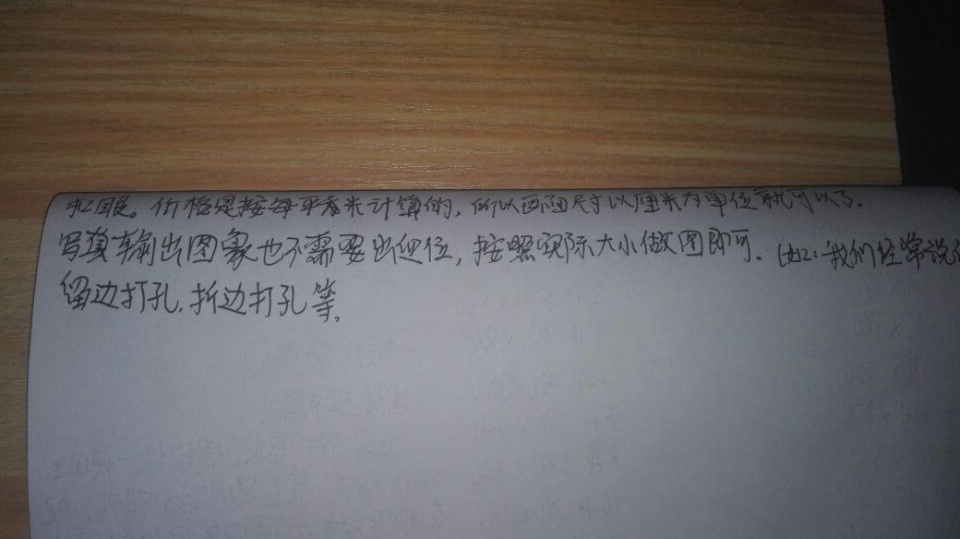 扣眼。价格是按每平方米计算的，所以画面尺寸以厘米为单位就可以了。
写真输出图象也不需要出血位，按照实际大小做图即可。（如：我们经常说
留边打孔，折边打孔等。